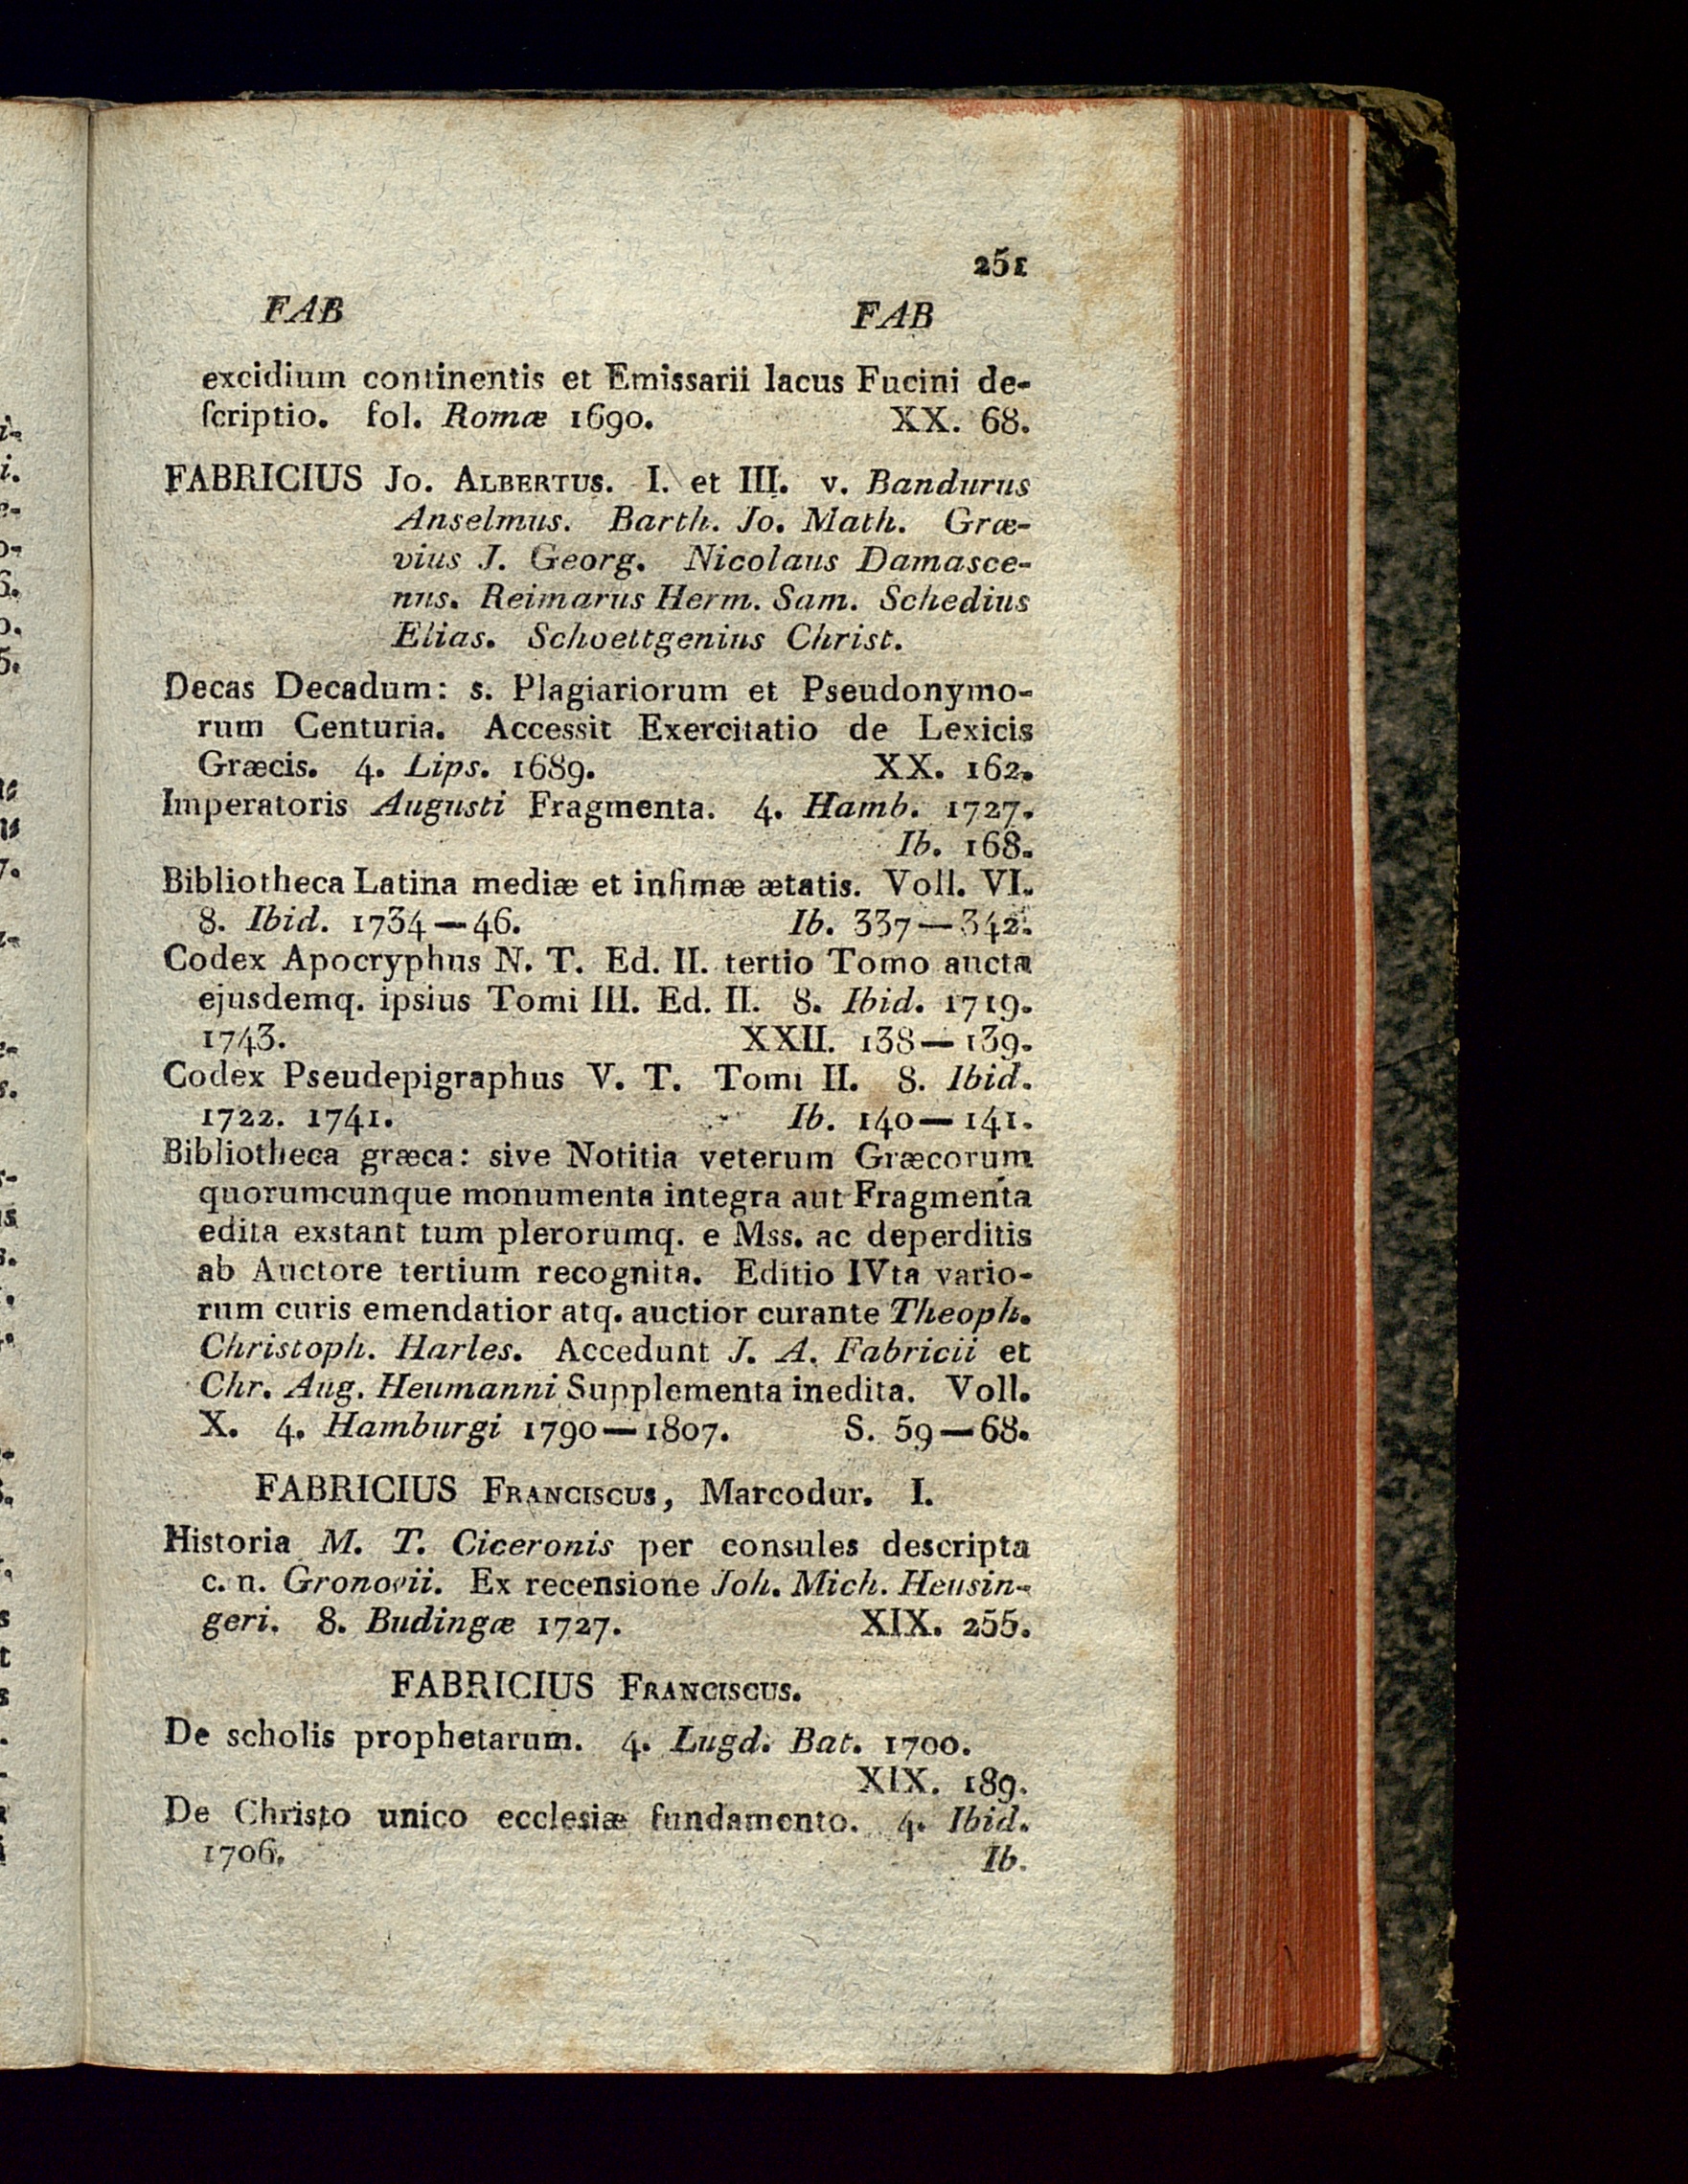 251
FAB FAB
excidium continentis et Emissarii lacus Fucini de-
ſcriptio. fol. Romæ 1690. XX. 68.
FABRICIUS Jo. Albertus. I. et III. v. Bandurus
Anselmus. Barth. Jo. Math. Græ-
vius J. Georg. Nicolaus Damasce-
nus. Reimarus Herm. Sam. Schedius
Elias. Schoettgenius Christ.
Decas Decadum: s. Plagiariorum et Pseudonymo-
rum Centuria. Accessit Exercitatio de Lexicis
Græcis. 4. Lips. 1689. XX. 162.
Imperatoris Augusti Fragmenta. 4. Hamb. 1727.
Ib. 168.
Bibliotheca Latina mediæ et infimæ ætatis. Voll. VI.
8. Ibid. 1734—46. Ib. 337—342.
Codex Apocryphus N. T. Ed. II. tertio Tomo aucta
ejusdemq. ipsius Tomi III. Ed. II. 8. Ibid. 1719.
1743. XXII. 138—139.
Codex Pseudepigraphus V. T. Tomi II. 8. Ibid.
1722. 1741. Ib. 140—141.
Bibliotheca græca: sive Notitia veterum Græcorum
quorumcunque monumenta integra aut Fragmenta
edita exstant tum plerorumq. e Mss. ac deperditis
ab Auctore tertium recognita. Editio IVta vario-
rum curis emendatior atq. auctior curante Theoph.
Christoph. Harles. Accedunt J. A. Fabricii et
Chr. Aug. Heumanni Supplementa inedita. Voll.
X. 4. Hamburgi 1790—1807. S. 59—68.
FABRICIUS Franciscus, Marcodur. I.
Historia M. T. Ciceronis per consules descripta
c. n. Gronovii. Ex recensione Joh. Mich. Heusin-
geri. 8. Budingæ 1727. XIX. 255.
FABRICIUS Franciscus.
De scholis prophetarum. 4. Lugd. Bat. 1700.
XIX. 189.
De Christo unico ecclesiæ fundamento. 4. Ibid.
1706. Ib.